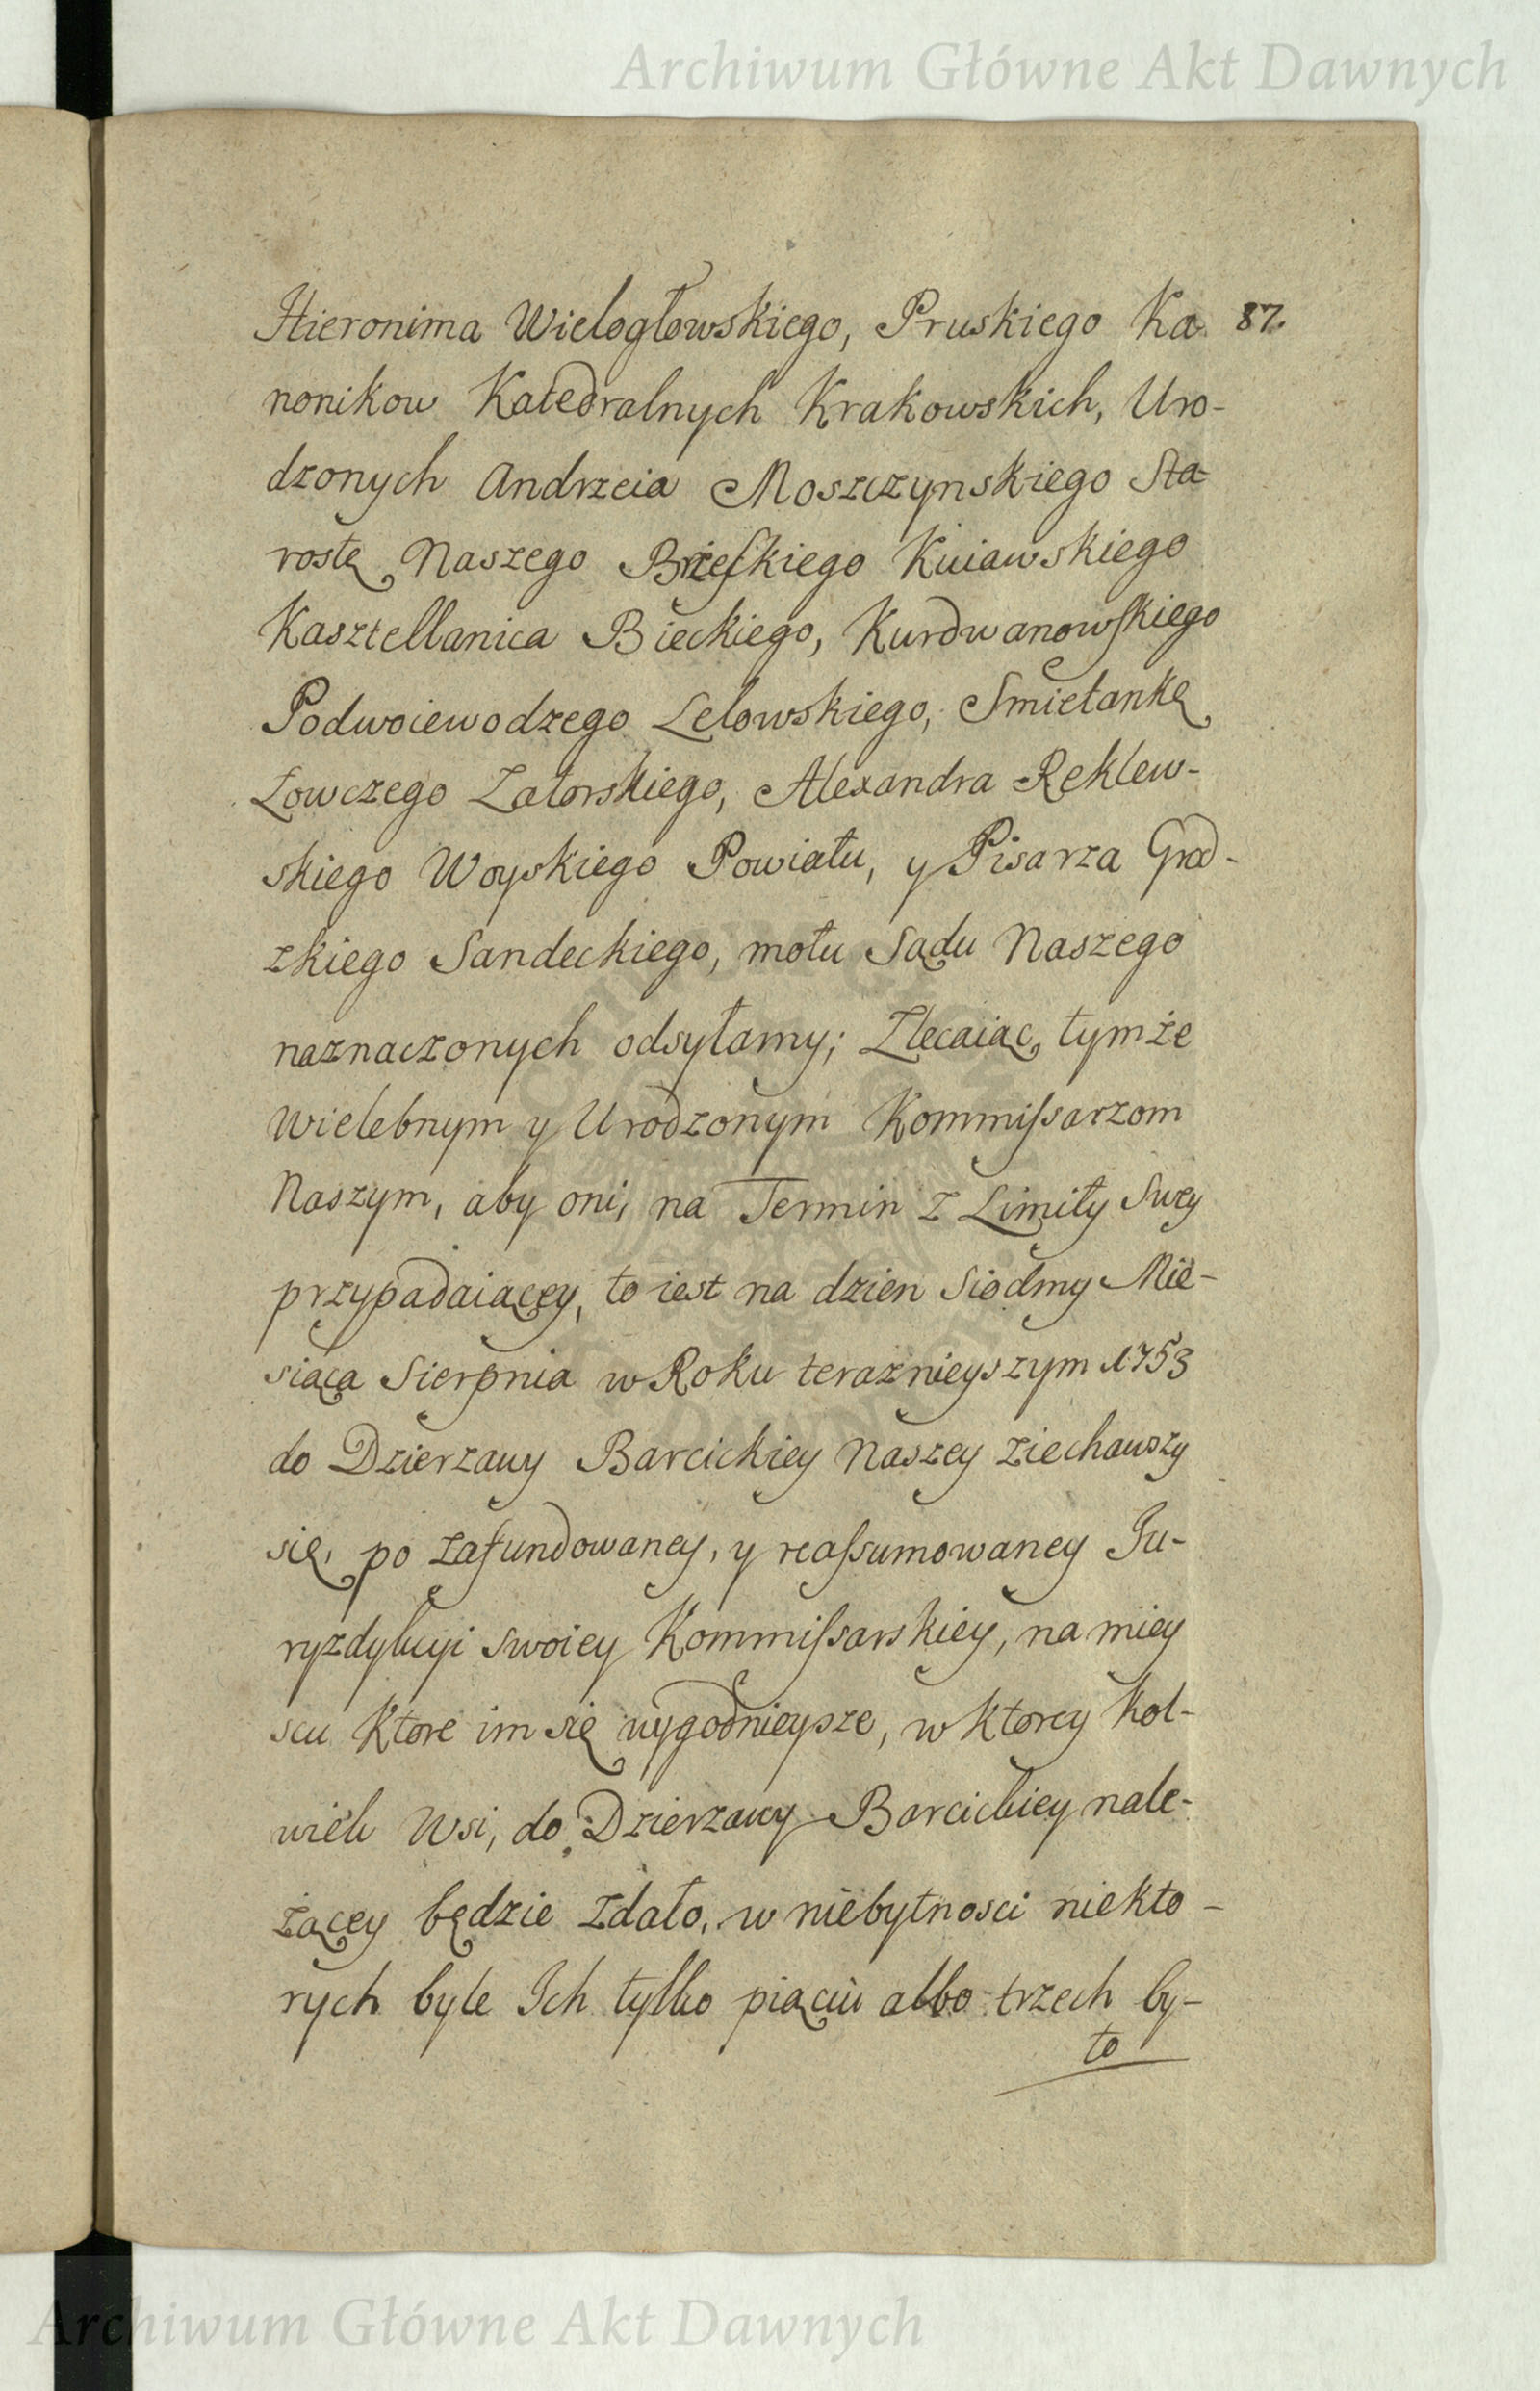 Archiwum Główne Akt Dawnych
Hieronima Wielogłowskiego, Pruskiego Ka 87.
nonikow Katedralnych Krakowskich, Uro-
dzonych Andrzeia Moszczynskiego Sta-
rostę Naszego Brzeskiego Kuiawskiego
Kasztellanica Bieckiego, Kurdwanowskiego
Podwoiewodzego Lelowskiego, Smietankę
Łowczego Zatorskiego, Alexandra Reklew-
skiego Woyskiego Powiatu, y Pisarza Grod-
zkiego Sandeckiego, motu Sądu Naszego
naznaczonych odsyłamy; Zlecaiąc tymże
Wielebnym y Urodzonym Kommissarzom
Naszym, aby oni, na Termin z Limity Swey
przypadaiącey, to iest na dzien Siodmy Mie-
siąca Sierpnia w Roku teraznieyszym 1753
do Dzierzawy Barcickiey Naszey ziechawszy
się, po zafundowaney, y reassumowaney Ju-
ryzdykcyi swoiey Kommissarskiey, na miey
scu ktore im się wygodnieysze, w ktorey kol-
wiek Wsi, do Dzierzawy Barcickiey nale-
żącey będzie zdało, w niebytnosci niekto-
rych byle Ich tylko piąciu albo trzech by-
ło
Archiwum Główne Akt Dawnych